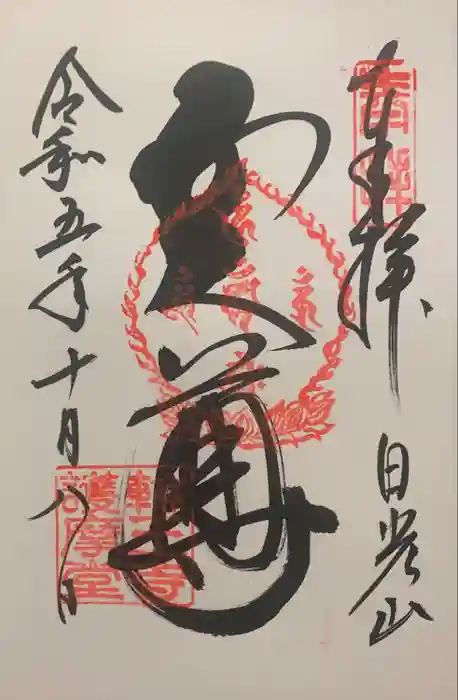 奉拝
日光山
五大尊
令和五年十月八日
輪王寺
護摩堂